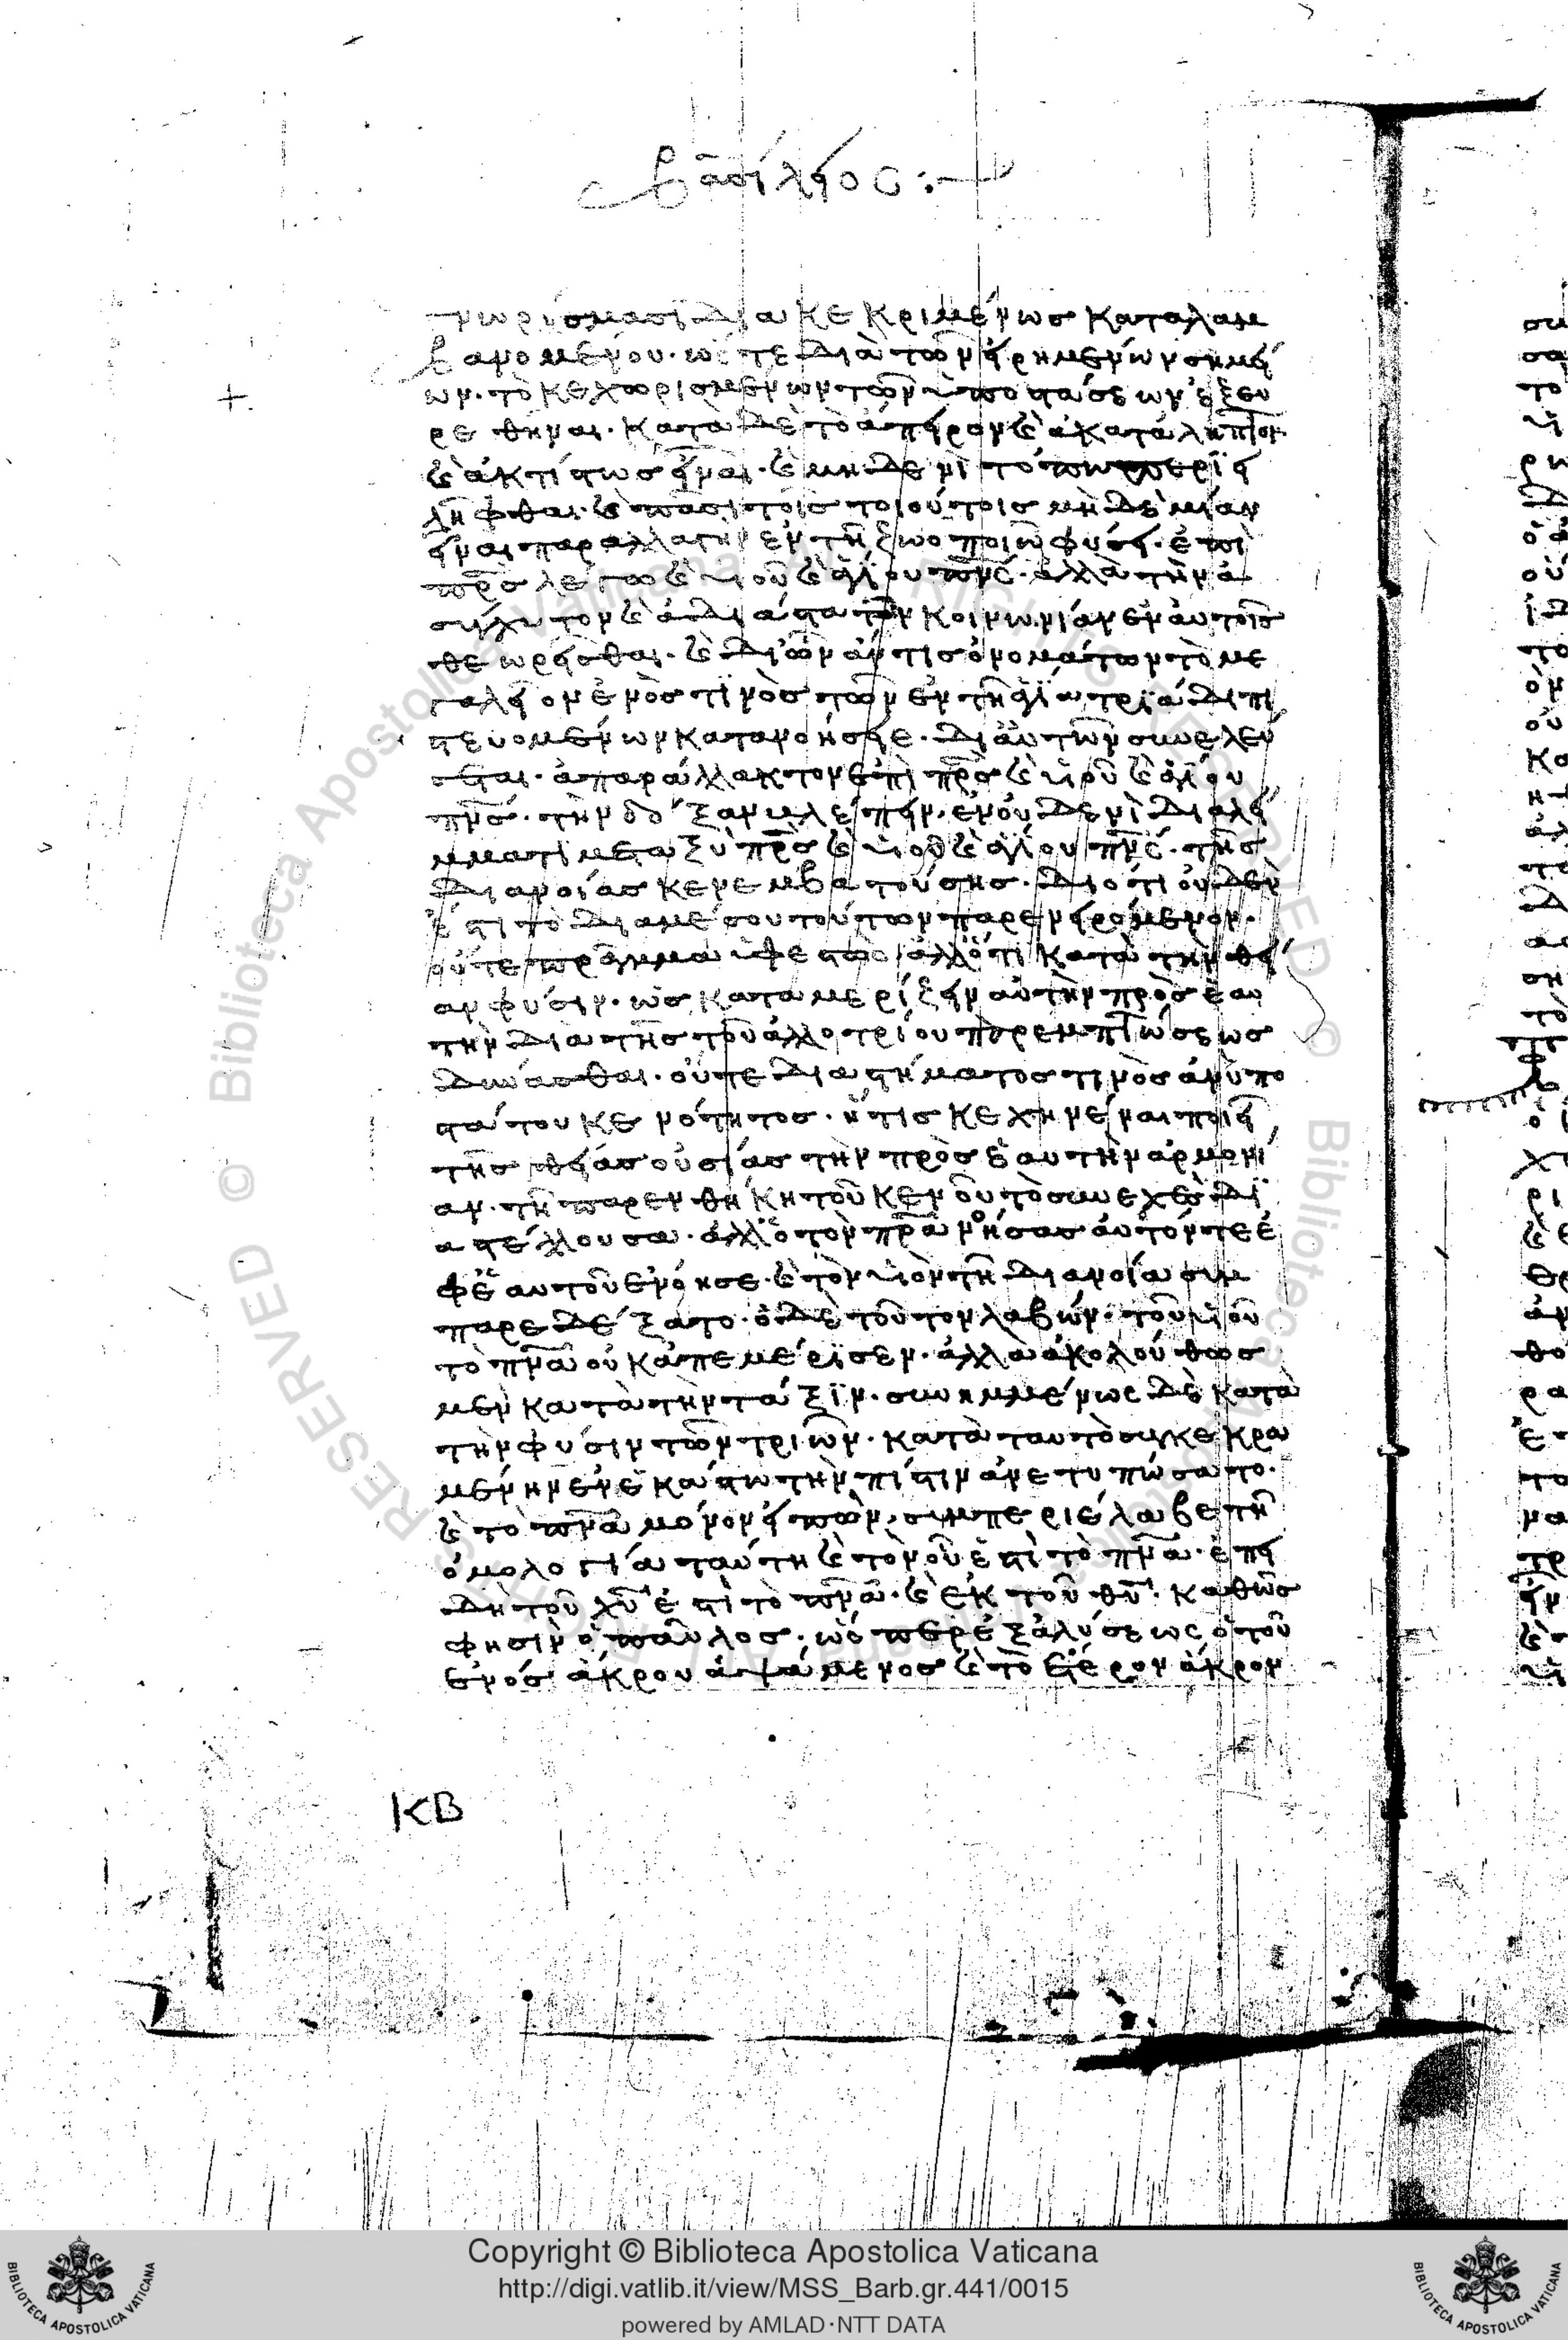 βασίλειος :–
γνωρίσμασι διακεκριμένως καταλαμ
βανομένου· ὥστε διὰ τῶν εἰρημένων σημεί
ων· τὸ κεχωρισμένων τῶν ὑποστάσεων ἐξευ
ρεθῆναι· κατὰ δὲ τὸ ἄπειρον καὶ ἀκατάληπτον
καὶ ἀκτίστως εἶναι· καὶ μηδενὶ τόπω περιει
λῆφθαι· καὶ πᾶσι τοῖς τοιούτοις μηδεμίαν
εἶναι παραλλαγὴν ἐν τῆ ζωοποιῶ φύσει· ἐπὶ
πρς λέγω καὶ υἱοῦ καὶ ἁγίου πνς· ἀλλὰ τὴν ἀ
σύγχυτον καὶ ἀδιάστατον κοινωνίαν ἐν αὐτοῖς
θεωρεῖσθαι· καὶ δι' ὧν ἄν τις νοημάτων τὸ με
γαλεῖον ἑνός τινος τῶν ἐν τῆ ἁγία τριάδι πι
στευομένων κατανοήσειε· διὰ αὐτῶν συνελεύ
σεται· ἀπαράλλακτον ἐπὶ πρς καὶ υἱοῦ καὶ ἁγίου
πνς· τὴν δόξαν βλέπειν· ἐν οὐδενὶ διαλεί
μματι μεταξὺ πρς καὶ υἱοῦ καὶ ἁγίου πνς· τῆς
διανοίας κενεμβατούσης· διότι οὐδέν
ἐστι τὸ διαμέσου τούτων παρενειρόμενον·
οὔτε πρᾶγμα ὑφεστὼς ἄλλό τι κατὰ τὴν θεί
αν φύσιν· ὡς καταμερίζειν αὐτὴν πρὸς ἑαυ
τὴν διὰ τῆς τοῦ ἀλλοτρίου παρεμπτώσεως
δύνασθαι· οὔτε διαστήματος τινὸς ἀνυπο
στάτου κενότητος· ἥτις κεχηνέναι ποιεῖ
τῆς θείας οὐσίας τὴν πρὸς ἑαυτὴν ἁρμονί
αν· τῆ παρενθήκη τοῦ κενοῦ τὸ συνεχὲς δι
αστέλλουσα· ἀλλ' ὁ τὸν πρα νοήσας αὐτόν τε ἐ
φ' ἑαυτοῦ ἐνόησε· καὶ τὸν υἱὸν τῆ διανοία συμ
παρεδέξατο· ὁ δὲ τοῦτον λαβών· τοῦ υἱοῦ
τὸ πνα οὐκ ἀπεμέρισεν· ἀλλὰ ἀκολούθως
μὲν κατὰ τὴν τάξιν· συνημμένως δὲ κατὰ
τὴν φύσιν τῶν τριῶν· κατὰ ταυτὸ συγκεκρα
μένην ἐν ἑκάστω τὴν πίστιν ἀνετυπώσατο·
καὶ τὸ πνα μόνον εἰπών· συμπεριέλαβε τῆ
ὁμολογία ταύτη καὶ τὸν οὗ ἐστὶ τὸ πνα· ἐπει
δὴ τοῦ χυ ἐστὶ τὸ πνα· καὶ ἐκ τοῦ θυ· καθώς
φησιν ὁ παῦλος· ὥσπερ ἐξ ἁλύσεως ὁ τοῦ
ἑνὸς ἄκρου ἁψάμενος καὶ τὸ ἕτερον ἄκρον
ΚΒ
Copyright © Biblioteca Apostolica Vaticana
http://digi.vatlib.it/view/MSS_Barb.gr.441/0015
powered by AMLAD·NTT DATA